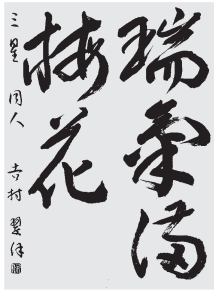 瑞氣満
梅花
三星 同人 吉村翠